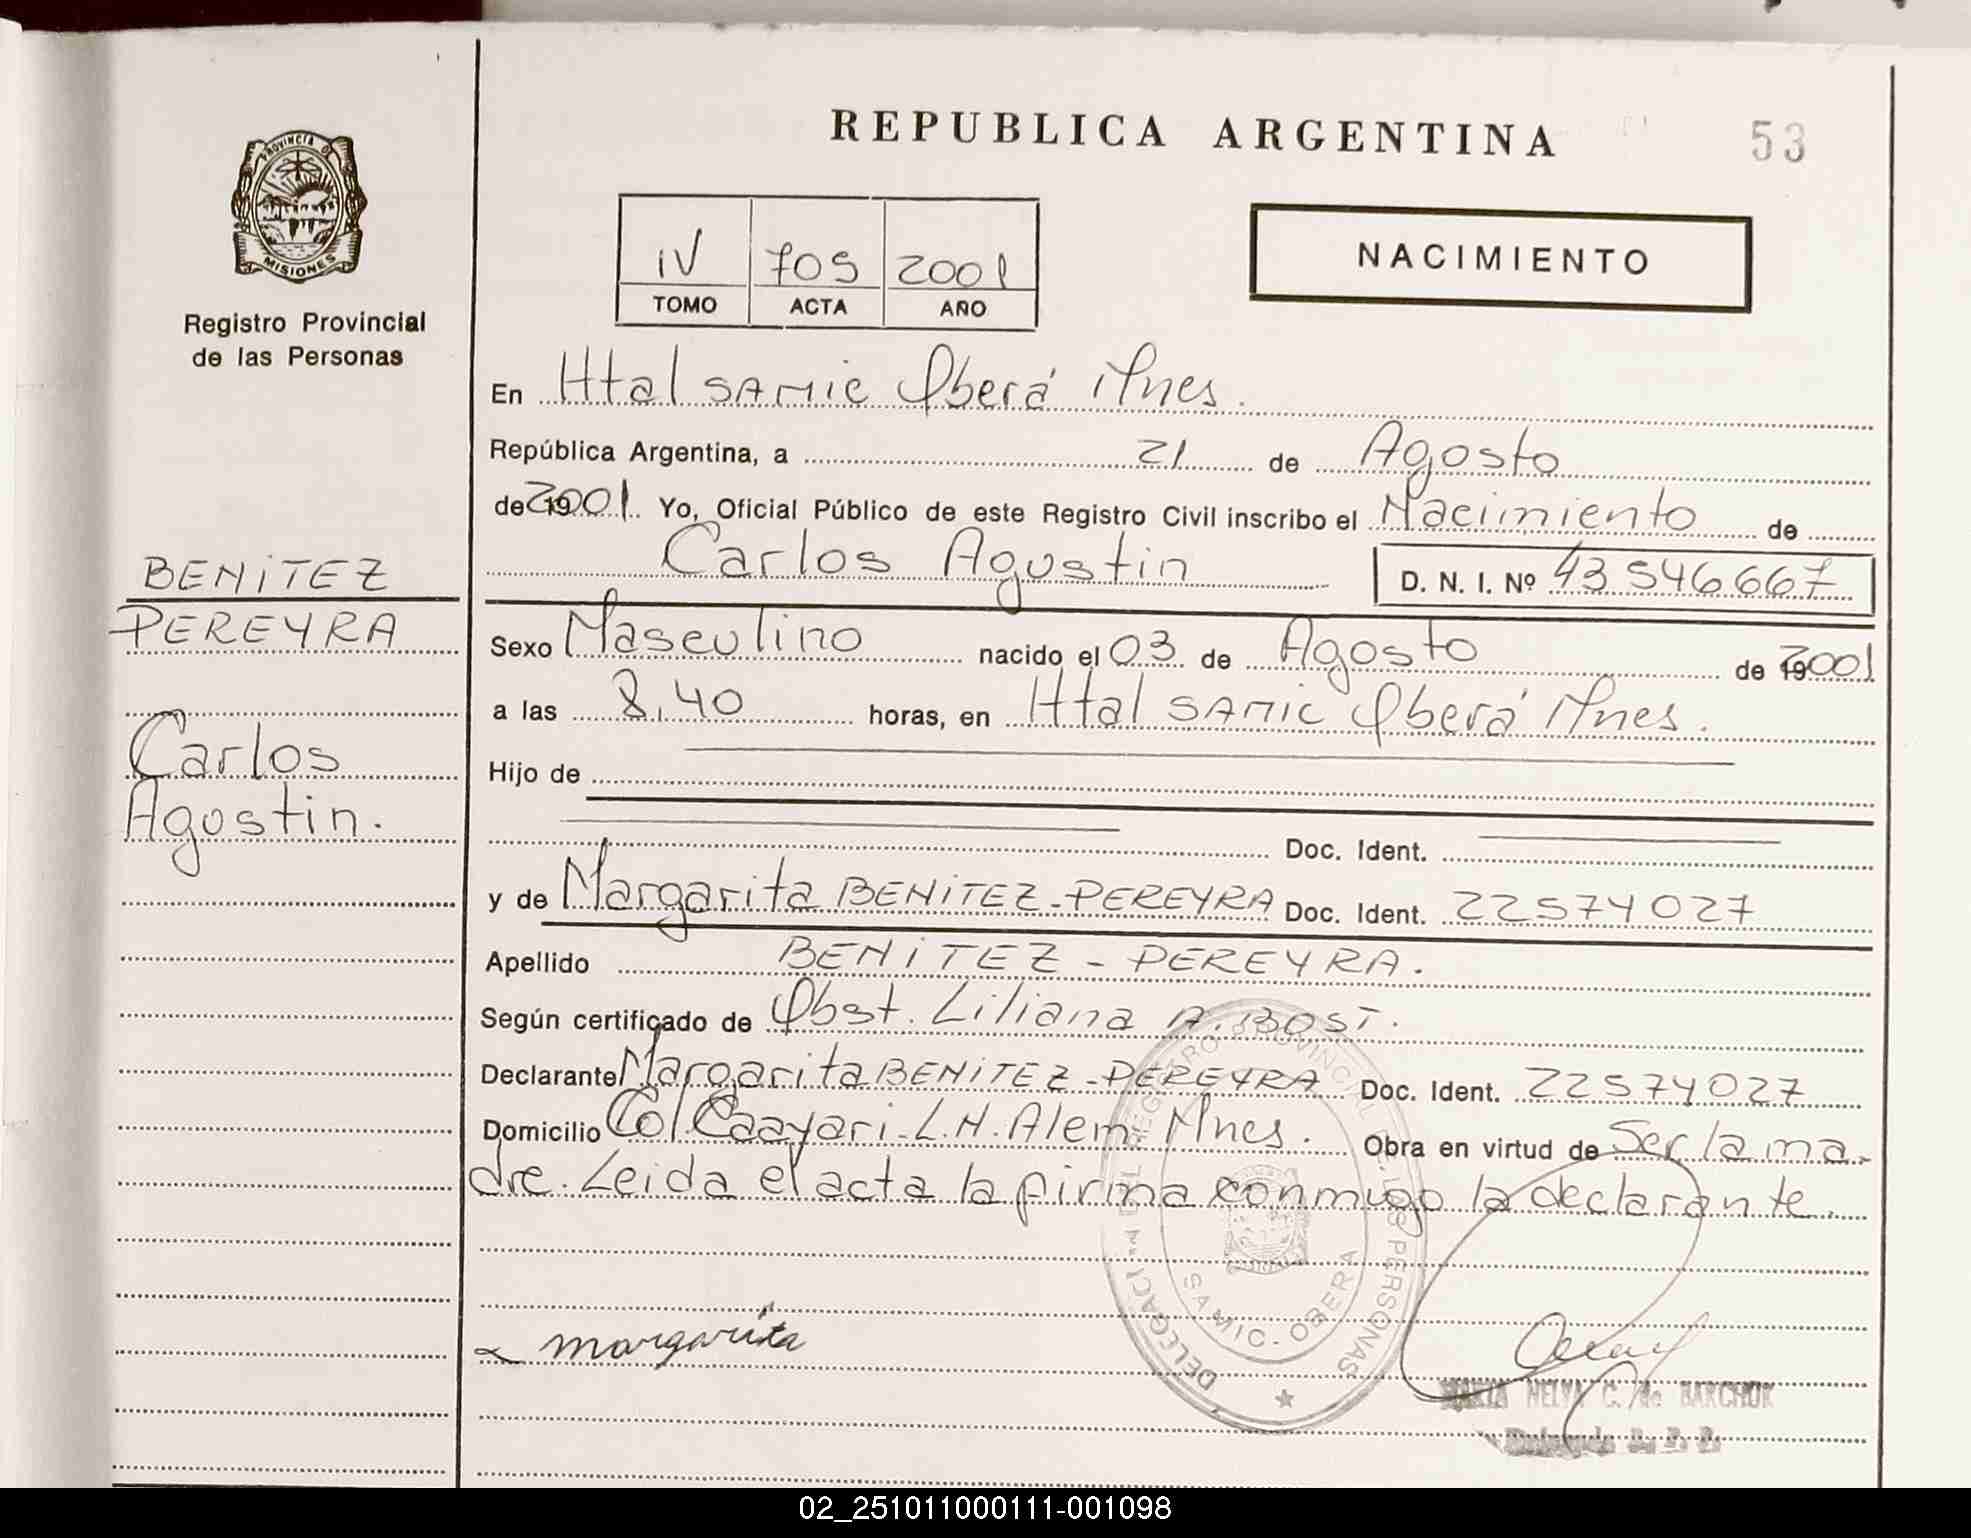 REPUBLICA ARGENTINA
53
PROVINCIA DE
MISIONES
Registro Provincial
de las Personas
IV 705 2001
TOMO ACTA AÑO
NACIMIENTO
En Htal SAMIC Oberá Mnes.
República Argentina, a 21 de Agosto
de 19 2001 Yo, Oficial Público de este Registro Civil inscribo el Nacimiento de
Carlos Agustin D. N. I. Nº 43 546 667
BENITEZ
PEREYRA
Carlos
Agustin.
Sexo Masculino nacido el 03 de Agosto de 19 2001
a las 8,40 horas, en Htal SAMIC Oberá Mnes.
Hijo de
Doc. Ident.
y de Margarita BENITEZ-PEREYRA Doc. Ident. 22574027
Apellido BENITEZ - PEREYRA.
Según certificado de Obst. Liliana A. BOST.
Declarante Margarita BENITEZ-PEREYRA Doc. Ident. 22574027
Domicilio Col. Caayari-L.N.Alem Mnes. Obra en virtud de Ser la ma-
dre. Leida el acta la firma conmigo la declarante.
margarita
REGISTRO PROVINCIAL DE LAS PERSONAS
SAMIC-OBERA
MARIA NELYA C. de BARCHUK
02_251011000111-001098